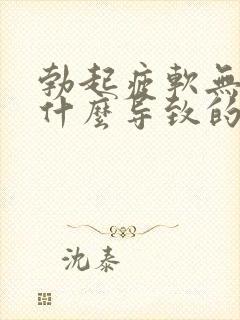 勃起疲軟無
什麼导致的
沈泰